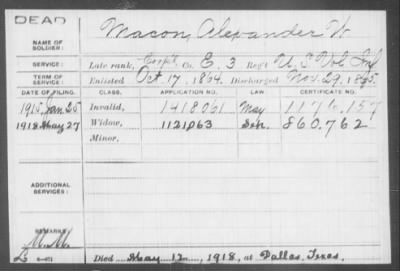 DEAD
NAME OF SOLDIER: Macon, Alexander W
SERVICE: Late rank, Corp'l Co. E. 3 Reg't U. S. Vol Inf
TERM OF SERVICE: Enlisted Oct. 17, 1864. Discharged Nov. 29, 1865.
DATE OF FILING. CLASS. APPLICATION NO. LAW. CERTIFICATE NO.
1915, Jan 25 Invalid, 1418061 May 1176.157
1918 May 27 Widow, 1121063 Sep. 860.762
Minor,
ADDITIONAL SERVICES:
REMARKS
Died May 12, 1918, at Dallas, Texas.